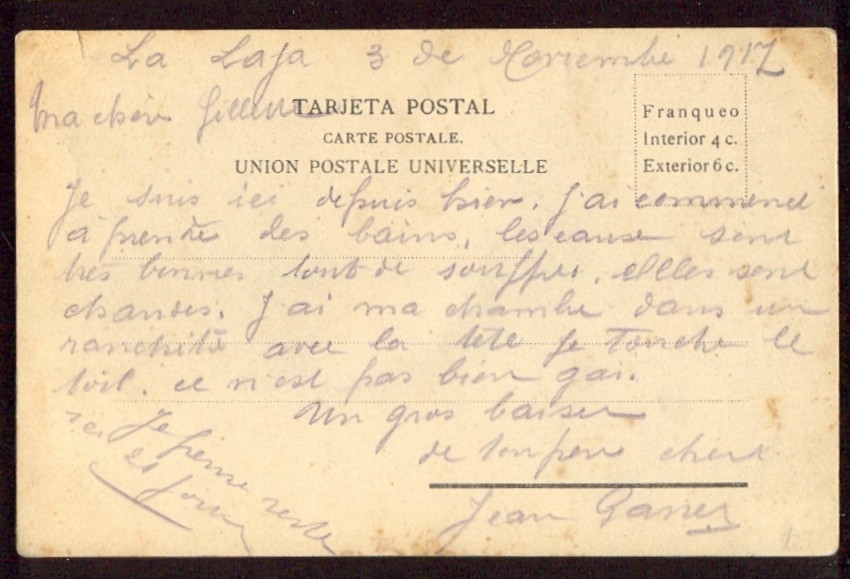 La Laja 3 de Noviembre 1917
Ma chère
TARJETA POSTAL
CARTE POSTALE.
UNION POSTALE UNIVERSELLE
Franqueo
Interior 4 c.
Exterior 6 c.
Je suis ici depuis hier. J'ai commencé
a prendre des bains, les eaux sont
très bonnes tout de souffre. Elles sont
chaudes. J'ai ma chambre dans un
ranchito avec la tete je touche le
toit. ce n'est pas bien gai.
Un gros baiser
de ton pere cheri
Jean
Je pense rester
ici
jours